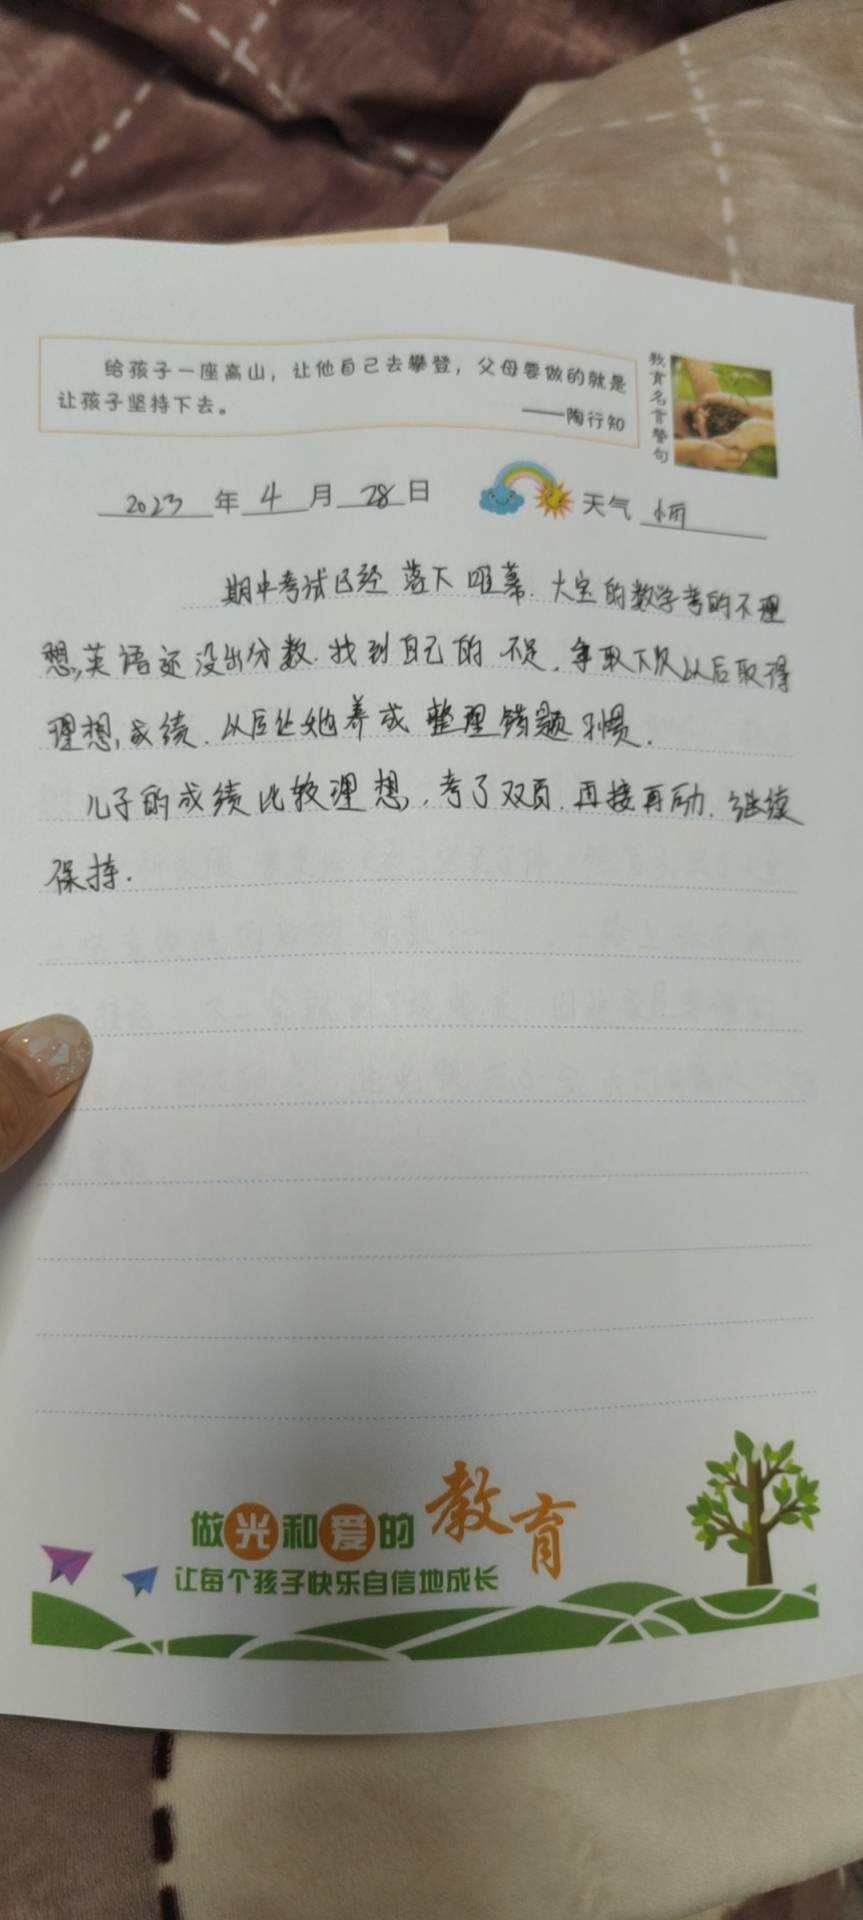 给孩子一座高山，让他自己去攀登，父母要做的就是
让孩子坚持下去。
——陶行知
教育名言警句
2023年4月28日
天气 小雨
期中考试已经落下帷幕.大宝的数学考的不理
想,英语还没出分数.找到自己的不足,争取下次以后取得
理想,成绩.从后让她养成整理错题习惯.
儿子的成绩比较理想,考了双百.再接再励.继续
保持.
做光和爱的教育
让每个孩子快乐自信地成长